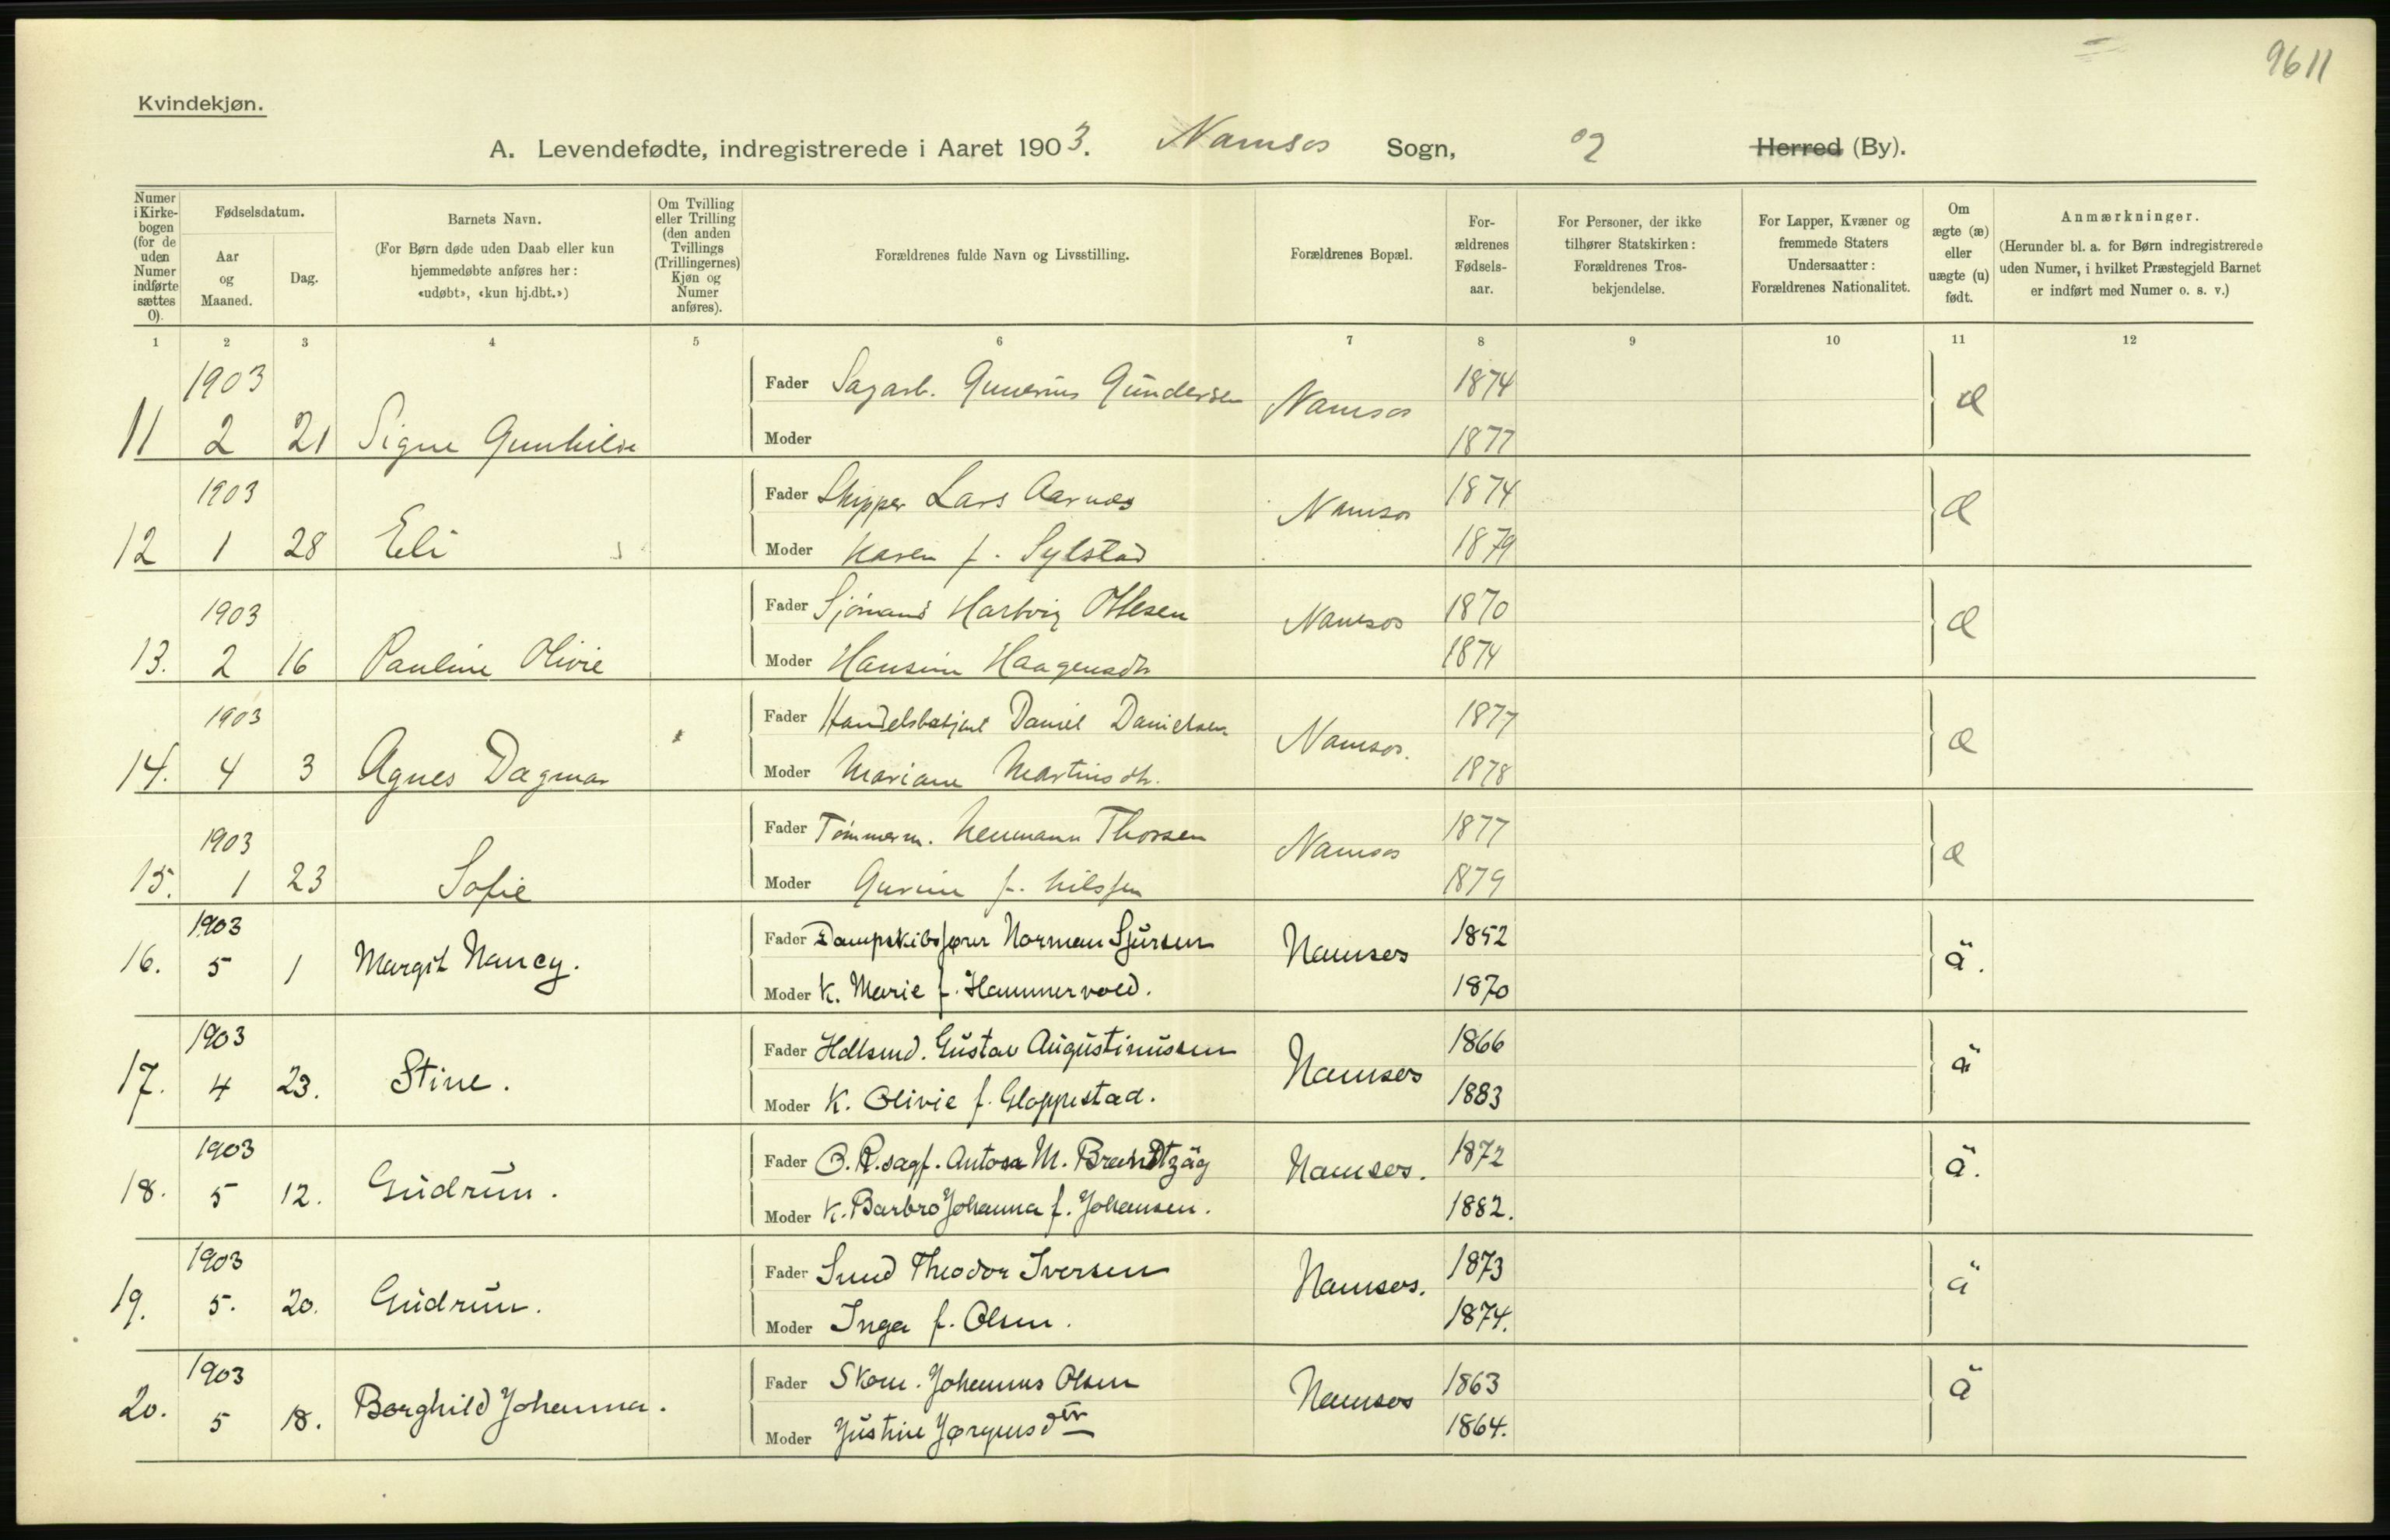 9611
Kvindekjøn.
A. Levendefødte, indregistrerede i Aaret 1903. Namsos Sogn, Herred (By).
Numer i Kirke-bogen (for de uden Numer indførte sættes 0).
Fødselsdatum.
Aar og Maaned.
Dag.
Barnets Navn.
(For Børn døde uden Daab eller kun hjemmedøbte anføres her: «udøbt», «kun hj.dbt.»)
Om Tvilling eller Trilling (den anden Tvillings (Trillingernes) Kjøn og Numer anføres).
Forældrenes fulde Navn og Livsstilling.
Forældrenes Bopæl.
For-ældrenes Fødsels-aar.
For Personer, der ikke tilhører Statskirken: Forældrenes Tros-bekjendelse.
For Lapper, Kvæner og fremmede Staters Undersaatter: Forældrenes Nationalitet.
Om ægte (æ) eller uægte (u) født.
Anmærkninger.
(Herunder bl. a. for Børn indregistrerede uden Numer, i hvilket Præstegjeld Barnet er indført med Numer o. s. v.)
1 2 3 4 5 6 7 8 9 10 11 12
1903 Fader Sagarb. Gunerius Gundersen Namsos 1874 æ
11 2 21 Signe Gunhild Moder 1877
1903 Fader Skipper Lars Aarnes Namsos 1874 æ
12 1 28 Eli Moder Karen f. Sylstad 1879
1903 Fader Sjömand Hartvig Ottesen Namsos 1870 æ
13. 2 16 Pauline Olivie Moder Hansine Haagensdtr 1874
1903 Fader Handelsbetjent Daniel Danielsen Namsos. 1877 æ
14. 4 3 Agnes Dagmar Moder Mariane Martinsdtr. 1878
1903 Fader Tömmerm. Neumann Thorsen Namsos 1877 æ
15. 1 23 Sofie Moder Gurine f. Nilssen 1879
1903 Fader Dampskibsfører Norman Sjursen Namsos 1852 ä.
16. 5 1 Margit Nancy. Moder K. Marie f. Hammervold. 1870
1903 Fader Hdlsmd. Gustav Augustinussen Namsos 1866 ä
17. 4 23. Stine. Moder K. Olivie f. Gloppestad. 1883
1903 Fader O.R.sagf. Anton M. Brandtzäg Namsos. 1872 ä.
18. 5 12. Gudrun. Moder K. Barbro Johanna f. Johansen. 1882.
1903 Fader Smed Theodor Iversen Namsos. 1873 ä
19. 5. 20. Gudrun. Moder Inga f. Olsen. 1874.
1903 Fader Skom. Johannes Olsen Namsos 1863 ä
20. 5 18. Borghild Johanna. Moder Justine Jørgensdtr 1864.